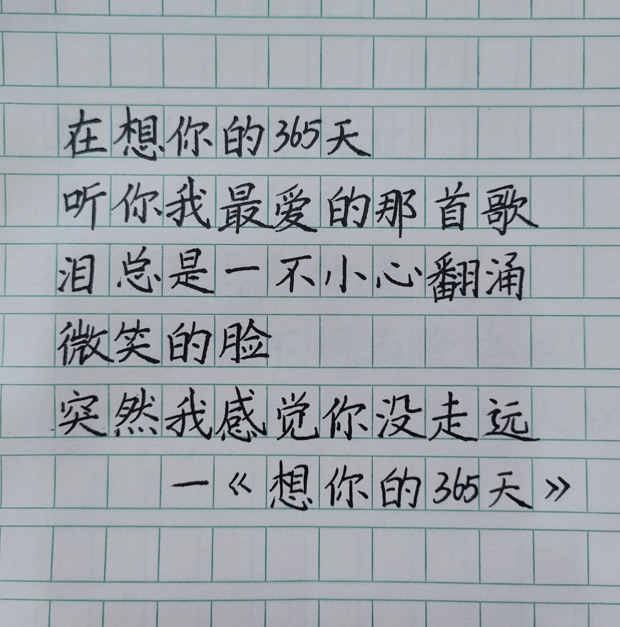 在想你的365天
听你我最爱的那首歌
泪总是一不小心翻涌
微笑的脸
突然我感觉你没走远
一《想你的365天》